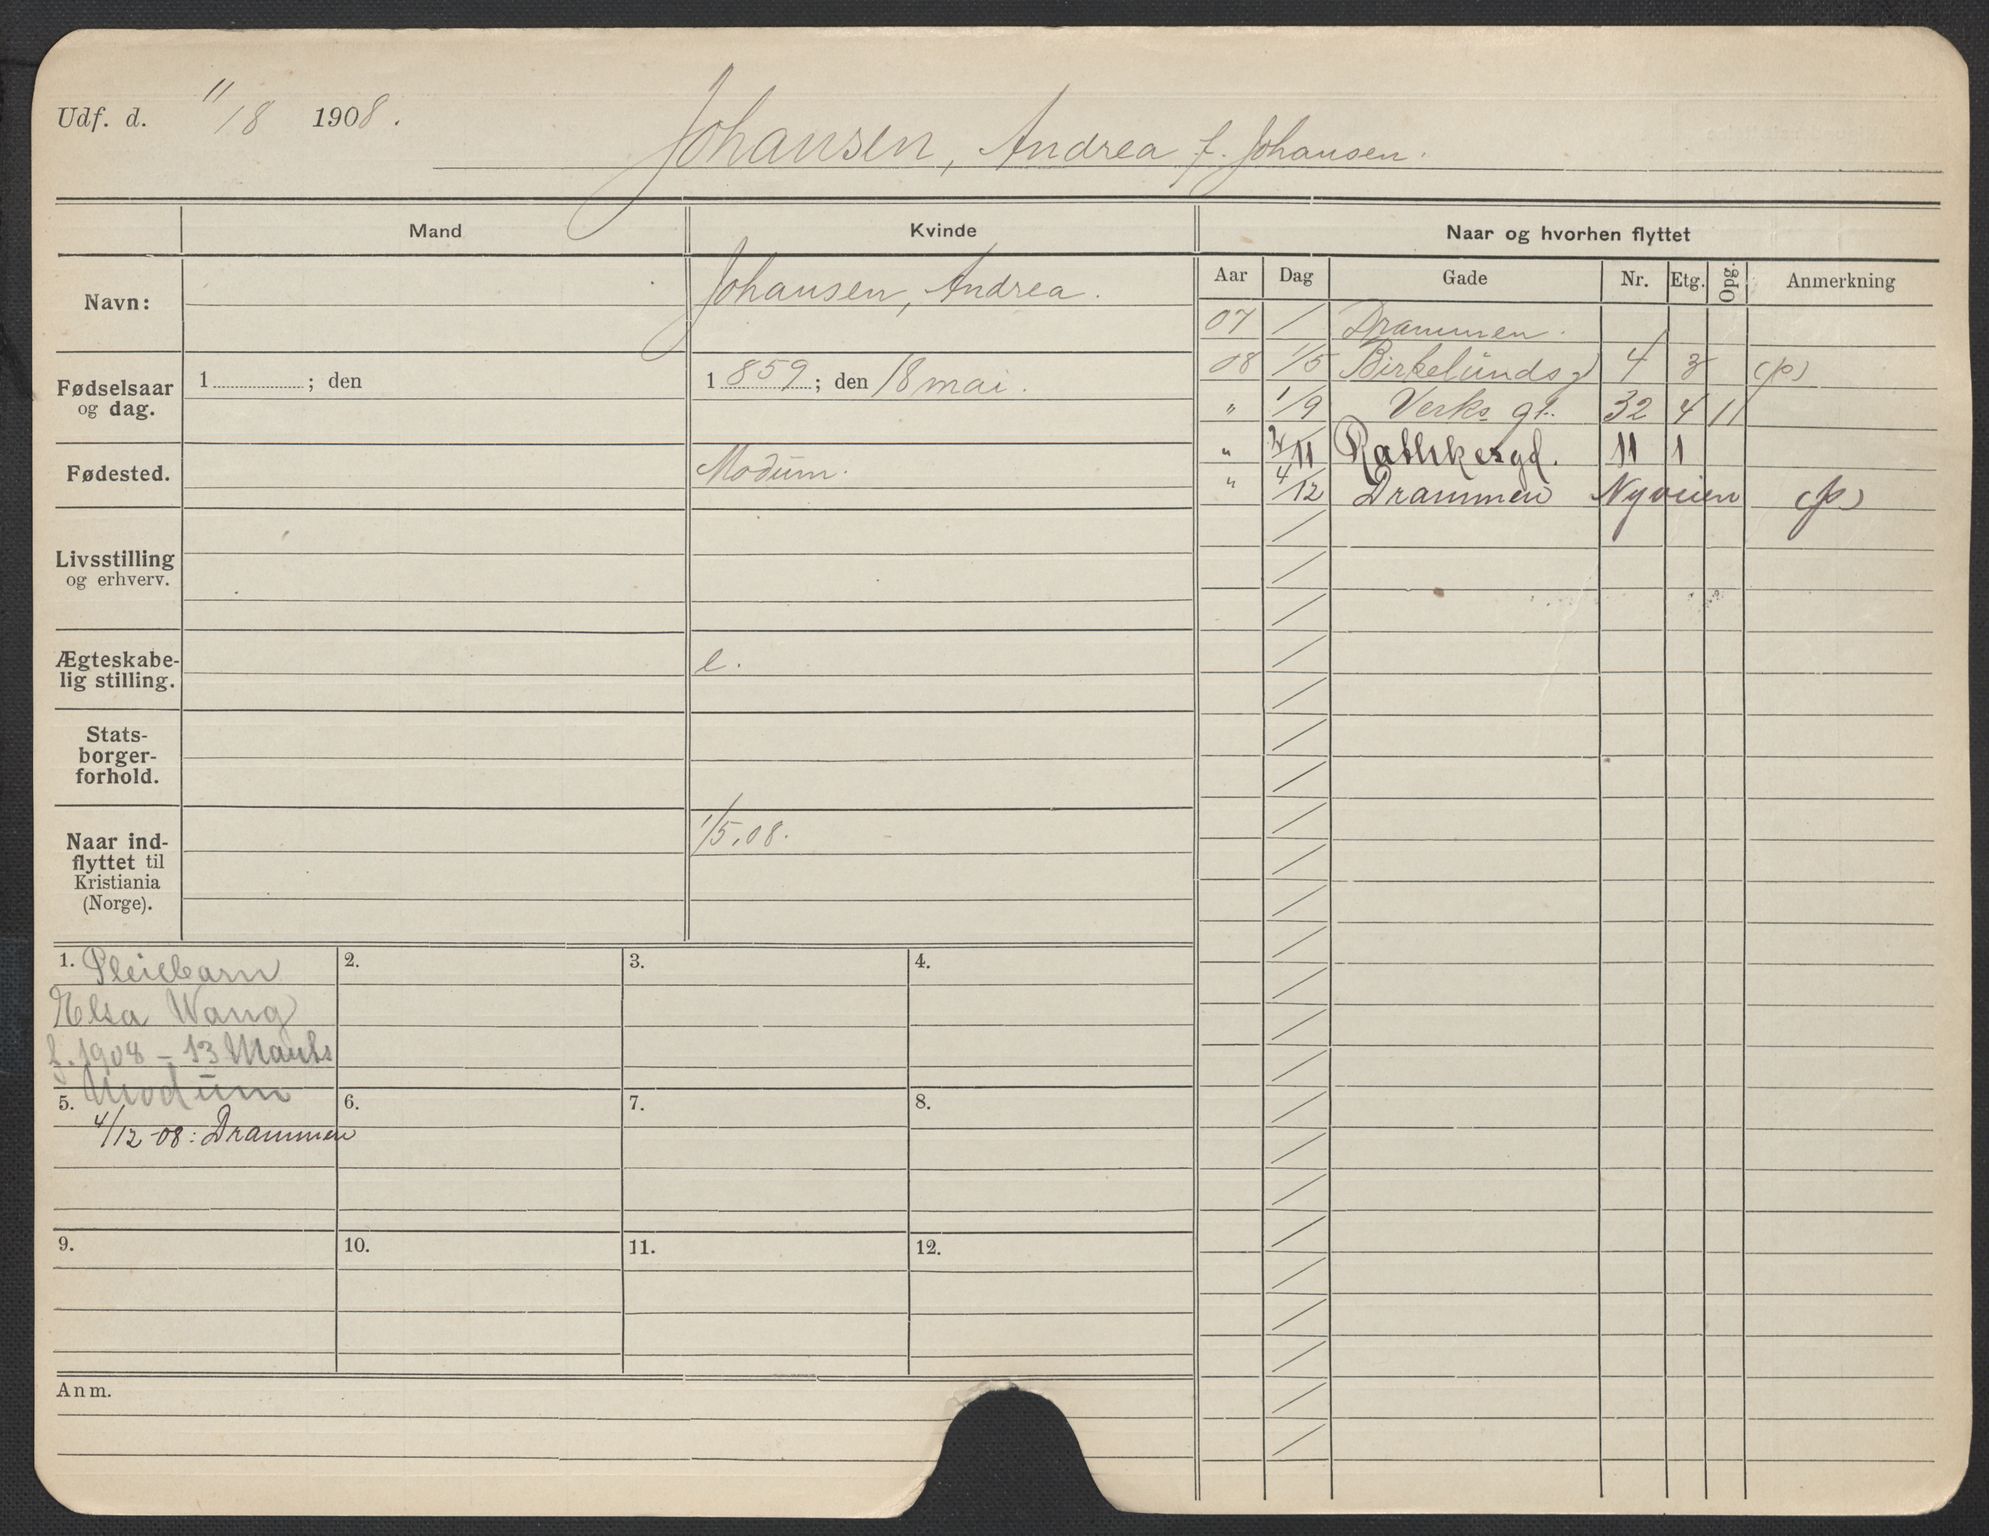 Udf. d. 11/8 1908.
Johansen, Andrea f. Johansen.
Mand
Kvinde
Naar og hvorhen flyttet
Navn:
Johansen, Andrea.
Fødselsaar og dag.
1 ; den
1 859 ; den 18 mai.
Fødested.
Modum.
Livsstilling og erhverv.
Ægteskabe-
lig stilling.
e.
Stats-
borger-
forhold.
Naar ind-
flyttet til
Kristiania
(Norge).
1/5.08.
Aar Dag Gade Nr. Etg. Opg. Anmerkning
07 / Drammen.
08 1/5 Birkelundsg 4 3 (p)
" 1/9 Verks gt. 32 4 11
" 2/11 Rathkesgd. 11 1
" 4/12 Drammen Nyveien (p)
1. Pleiebarn
Elsa Wang
f. 1908 - 13 Marts
Modum
2.
3.
4.
5.
4/12-08: Drammen
6.
7.
8.
9.
10.
11.
12.
Anm.